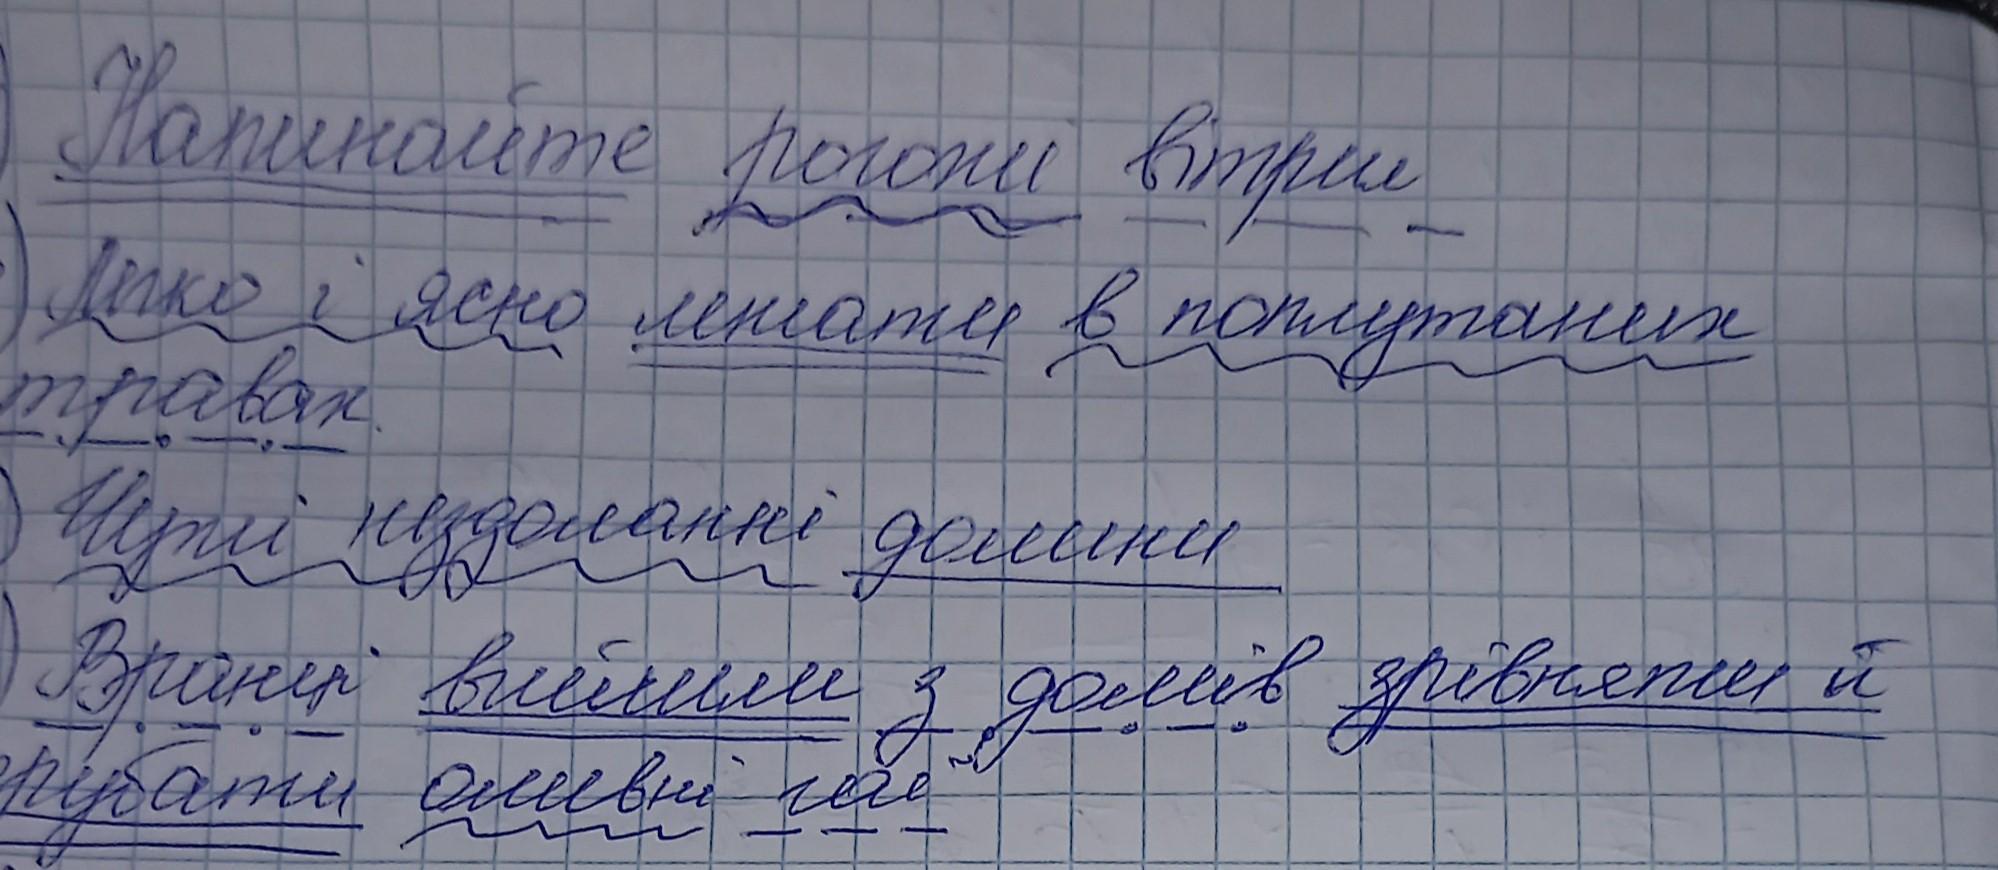 ) Напинайте рогожі вітрил
) Легко і ясно лежати в поплутаних
травах.
) Чужі нездоланні долини
) Вранці вийшли з домів зрівняти й
рубати оливні гаї